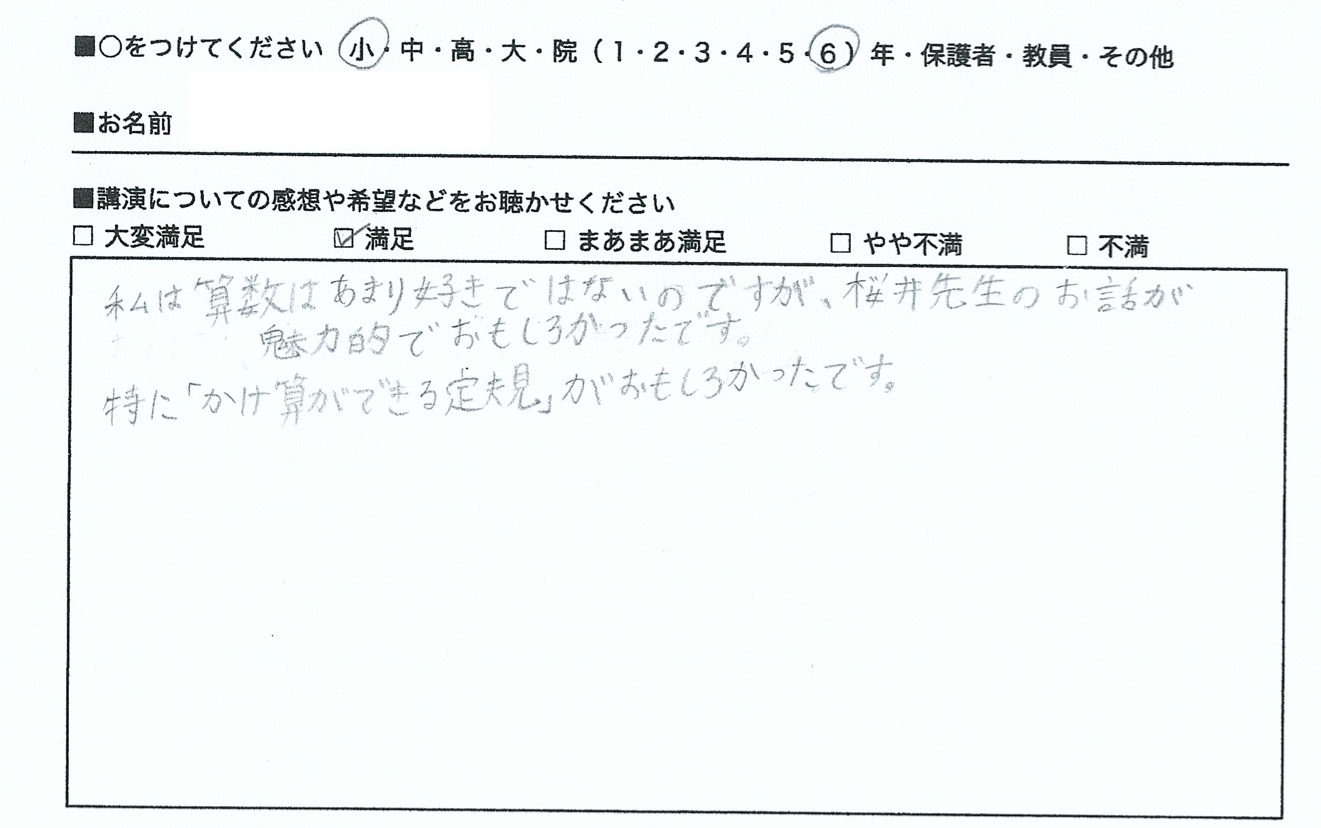 ■○をつけてください 小・中・高・大・院（1・2・3・4・5・6）年・保護者・教員・その他
■お名前
■講演についての感想や希望などをお聴かせください
□ 大変満足 ☑ 満足 □ まあまあ満足 □ やや不満 □ 不満
私は算数はあまり好きではないのですが、桜井先生のお話が
魅力的でおもしろかったです。
特に「かけ算ができる定規」がおもしろかったです。